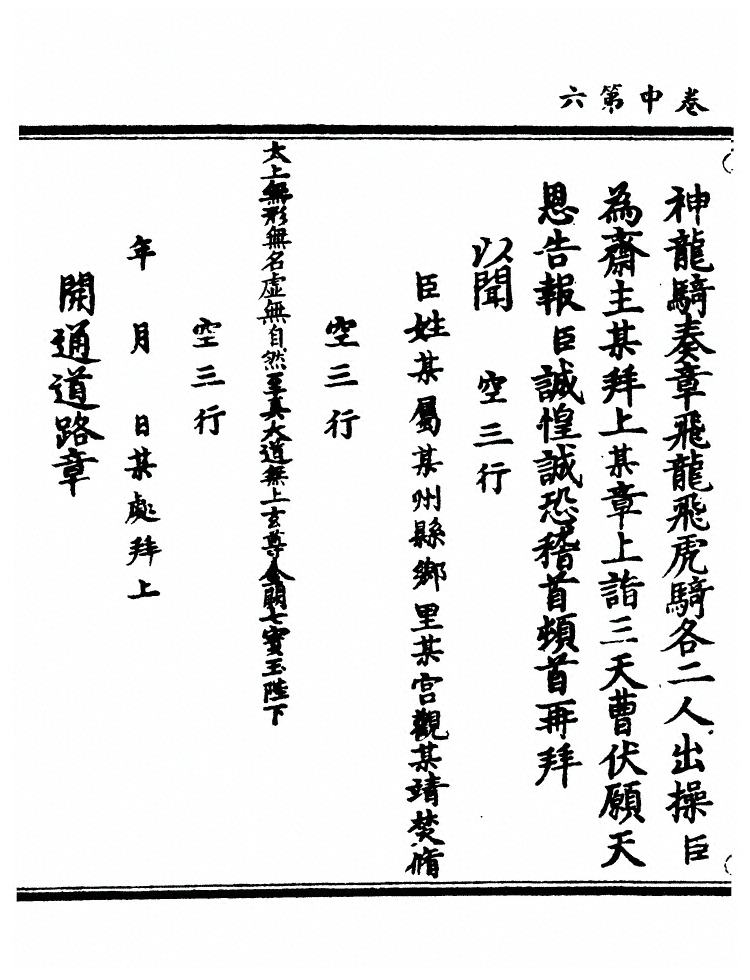 卷中第六
神龍騎奏章飛龍飛虎騎各二人出操臣
為齋主某拜上某章上詣三天曹伏願天
恩告報臣誠惶誠恐稽首頓首再拜
以聞 空三行
臣姓某屬某州縣鄉里某宮觀某靖焚脩
空三行
太上無形無名虛無自然至真大道無上玄尊金闕七寶玉陛下
空三行
年 月 日某處拜上
開通道路章